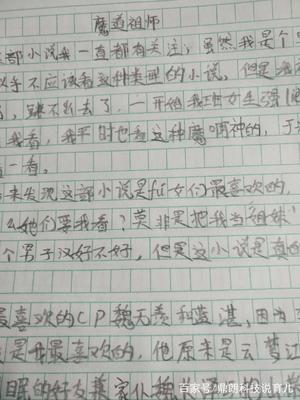 魔道祖师
部小说我一直都有关注，虽然我是个
以乎不应该看这种类型的小说，但是我
，跳不出去了，一开始我班女生强
我看，我平时也看这种魔啊神的，于
一看。
来发现这部小说是fu女们最喜欢的，
么她们要我看？莫非是把我当姐妹！
个男子汉好不好，但是这小说是真的
最喜欢的CP魏无羡和蓝湛，因为
是我最喜欢的，他原来是云梦江
眠的好友兼家仆魏
百家号/鼎朗科技说育儿